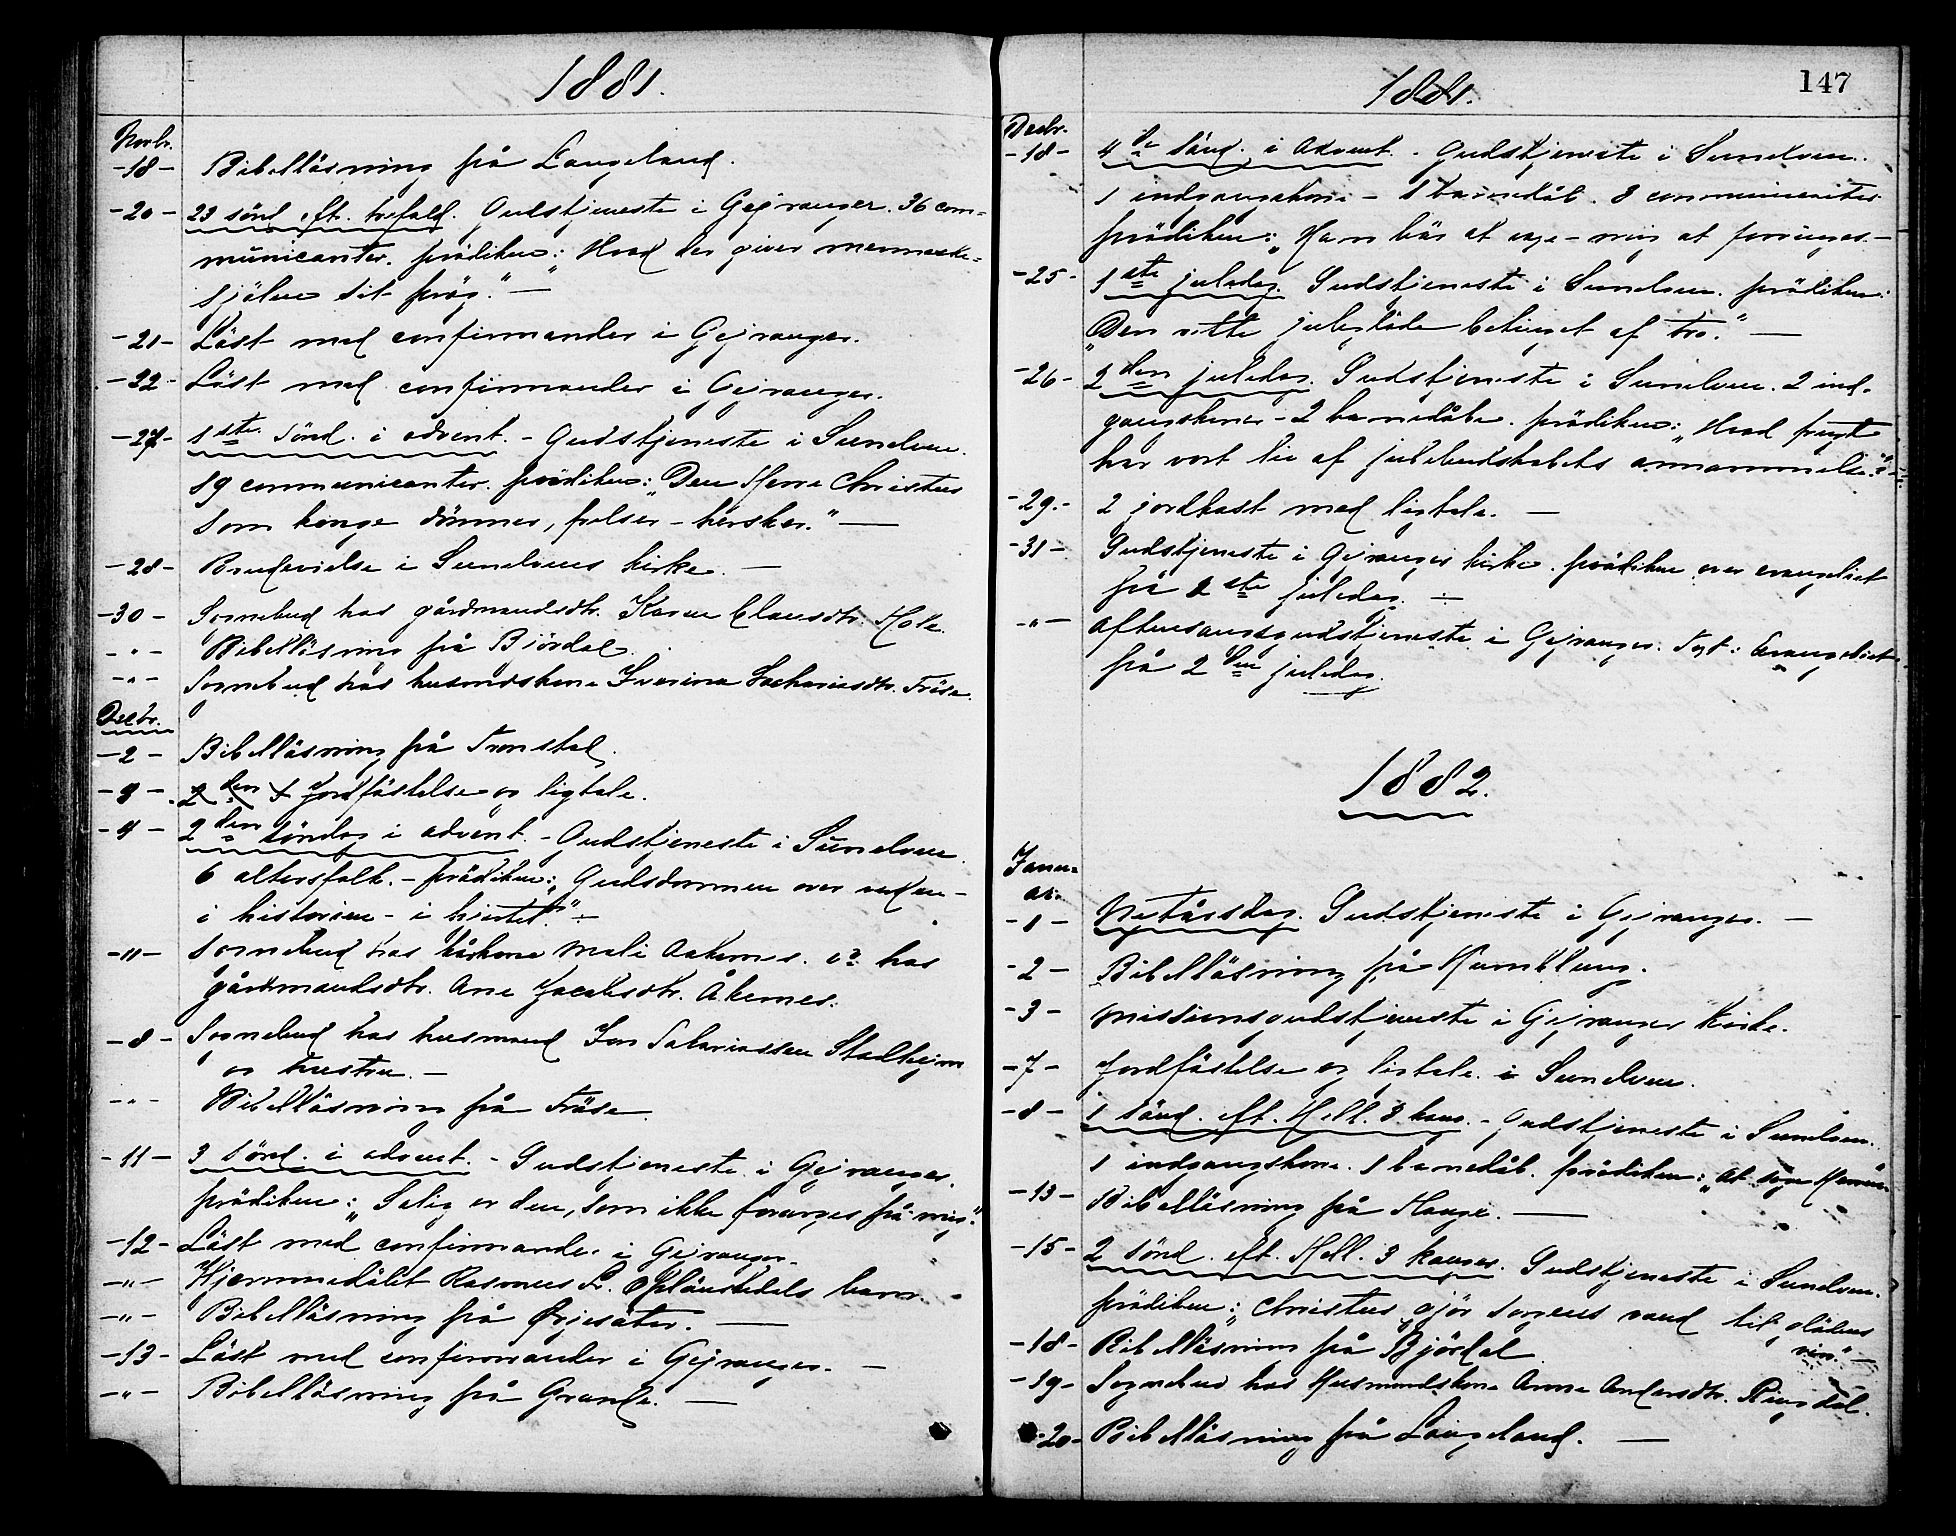 1881.
Novbr.
-18- Bibelläsning på Langeland.
-20- 23 sönd. eft. trefold. Gudstjeneste i Gejranger. 36 com-
municanter. prädiken: "Hvad der giver menneske-
själen sit präg." —
-21- Läst med confirmander i Gejranger.
-22- Läst med confirmander i Gejranger.
-27- 1ste sönd. i advent. - Gudstjeneste i Sunelven.
19 communicanter. prädiken: "Den Herre Christus
som konge dömmer, frelser - hersker." —
-28- Brudevielse i Sunelvens kirke. —
-30- Sognebud hos gårdmandsdtr. Karen Clausdtr. Hole.
-"- Bibelläsning på Björdal.
-"- Sognebud hos husmdskone Severina Zachariasdtr. Fröse.
Decbr.
-2- Bibelläsning på Tronstad.
-3- 2den s Jordfästelse og ligtale.
-4- 2den söndag i advent. - Gudstjeneste i Sunelven.
6 altersfolk. - prädiken: "Gudsdommen over verden -
i historien - i hjertet." -
-"- Sognebud hos kårkone Mali Aakernes. og hos
gårdmandsdtr. Ane Jacobsdtr. Åkernes.
-8- Sognebud hos husmand Jon Zakariassen Stadhejm
og hustru. —
-"- Bibelläsning på Fröse.
-11- 3 sönd. i advent. - Gudstjeneste i Gejranger.
prädiken: "Salig er den, som ikke forarges på mig."
-12- Läst med confirmander i Gejranger.
-"- Hjemmedöbt Rasmus Fr. barn.
-"- Bibelläsning på Örjesäter. —
-13- Läst med confirmander i Gejranger. —
-"- Bibelläsning på Grande. —
1881.
147
Decbr.
-18- 4de sönd. i Advent. - Gudstjeneste i Sunelven.
1 indgangskone - 1 barnedåb. 8 communicanter.
prädiken: "Ham bör at voxe - mig at forringes. -
-25- 1ste juledag. Gudstjeneste i Sunelven. prädiken:
"Den rette juleglæde betinget af tro." —
-26- 2den juledag. Gudstjeneste i Sunelven. 2 ind-
gangskoner - 2 barnedåbe. prädiken: "Hvad frugt
har vort liv af julebudskabets annammelse?"
-29- 2 jordkast med ligtale. —
-31- Gudstjeneste i Gejranger kirke. prädiken over evangeliet
på 1ste juledag. -
-"- Aftensangsgudstjeneste i Gejranger. Text: Evangeliet
på 2den juledag.
1882.
Janu-
ar.
-1- Nytårsdag. Gudstjeneste i Gejranger. —
-2- Bibelläsning på Humlung.
-3- Missionsgudstjeneste i Gejranger Kirke.
-7- Jordfästelse og ligtale i Sunelven.
-8- 1 sönd. eft. Hell. 3 kong. - Gudstjeneste i Sunelven.
1 indgangskone. 1 barnedåb. prädiken: "At söge Herren."
-13- Bibelläsning på Hauge. —
-15- 2 sönd. eft. Hell. 3 konger. Gudstjeneste i Sunelven.
prädiken: "Christus gjör sorgens vand til glädens
vin." —
-18- Bibelläsning på Björdal
-19- Sognebud hos Husmandskone Anne Andersdtr. Ringdal.
-20- Bibelläsning på Langeland. —